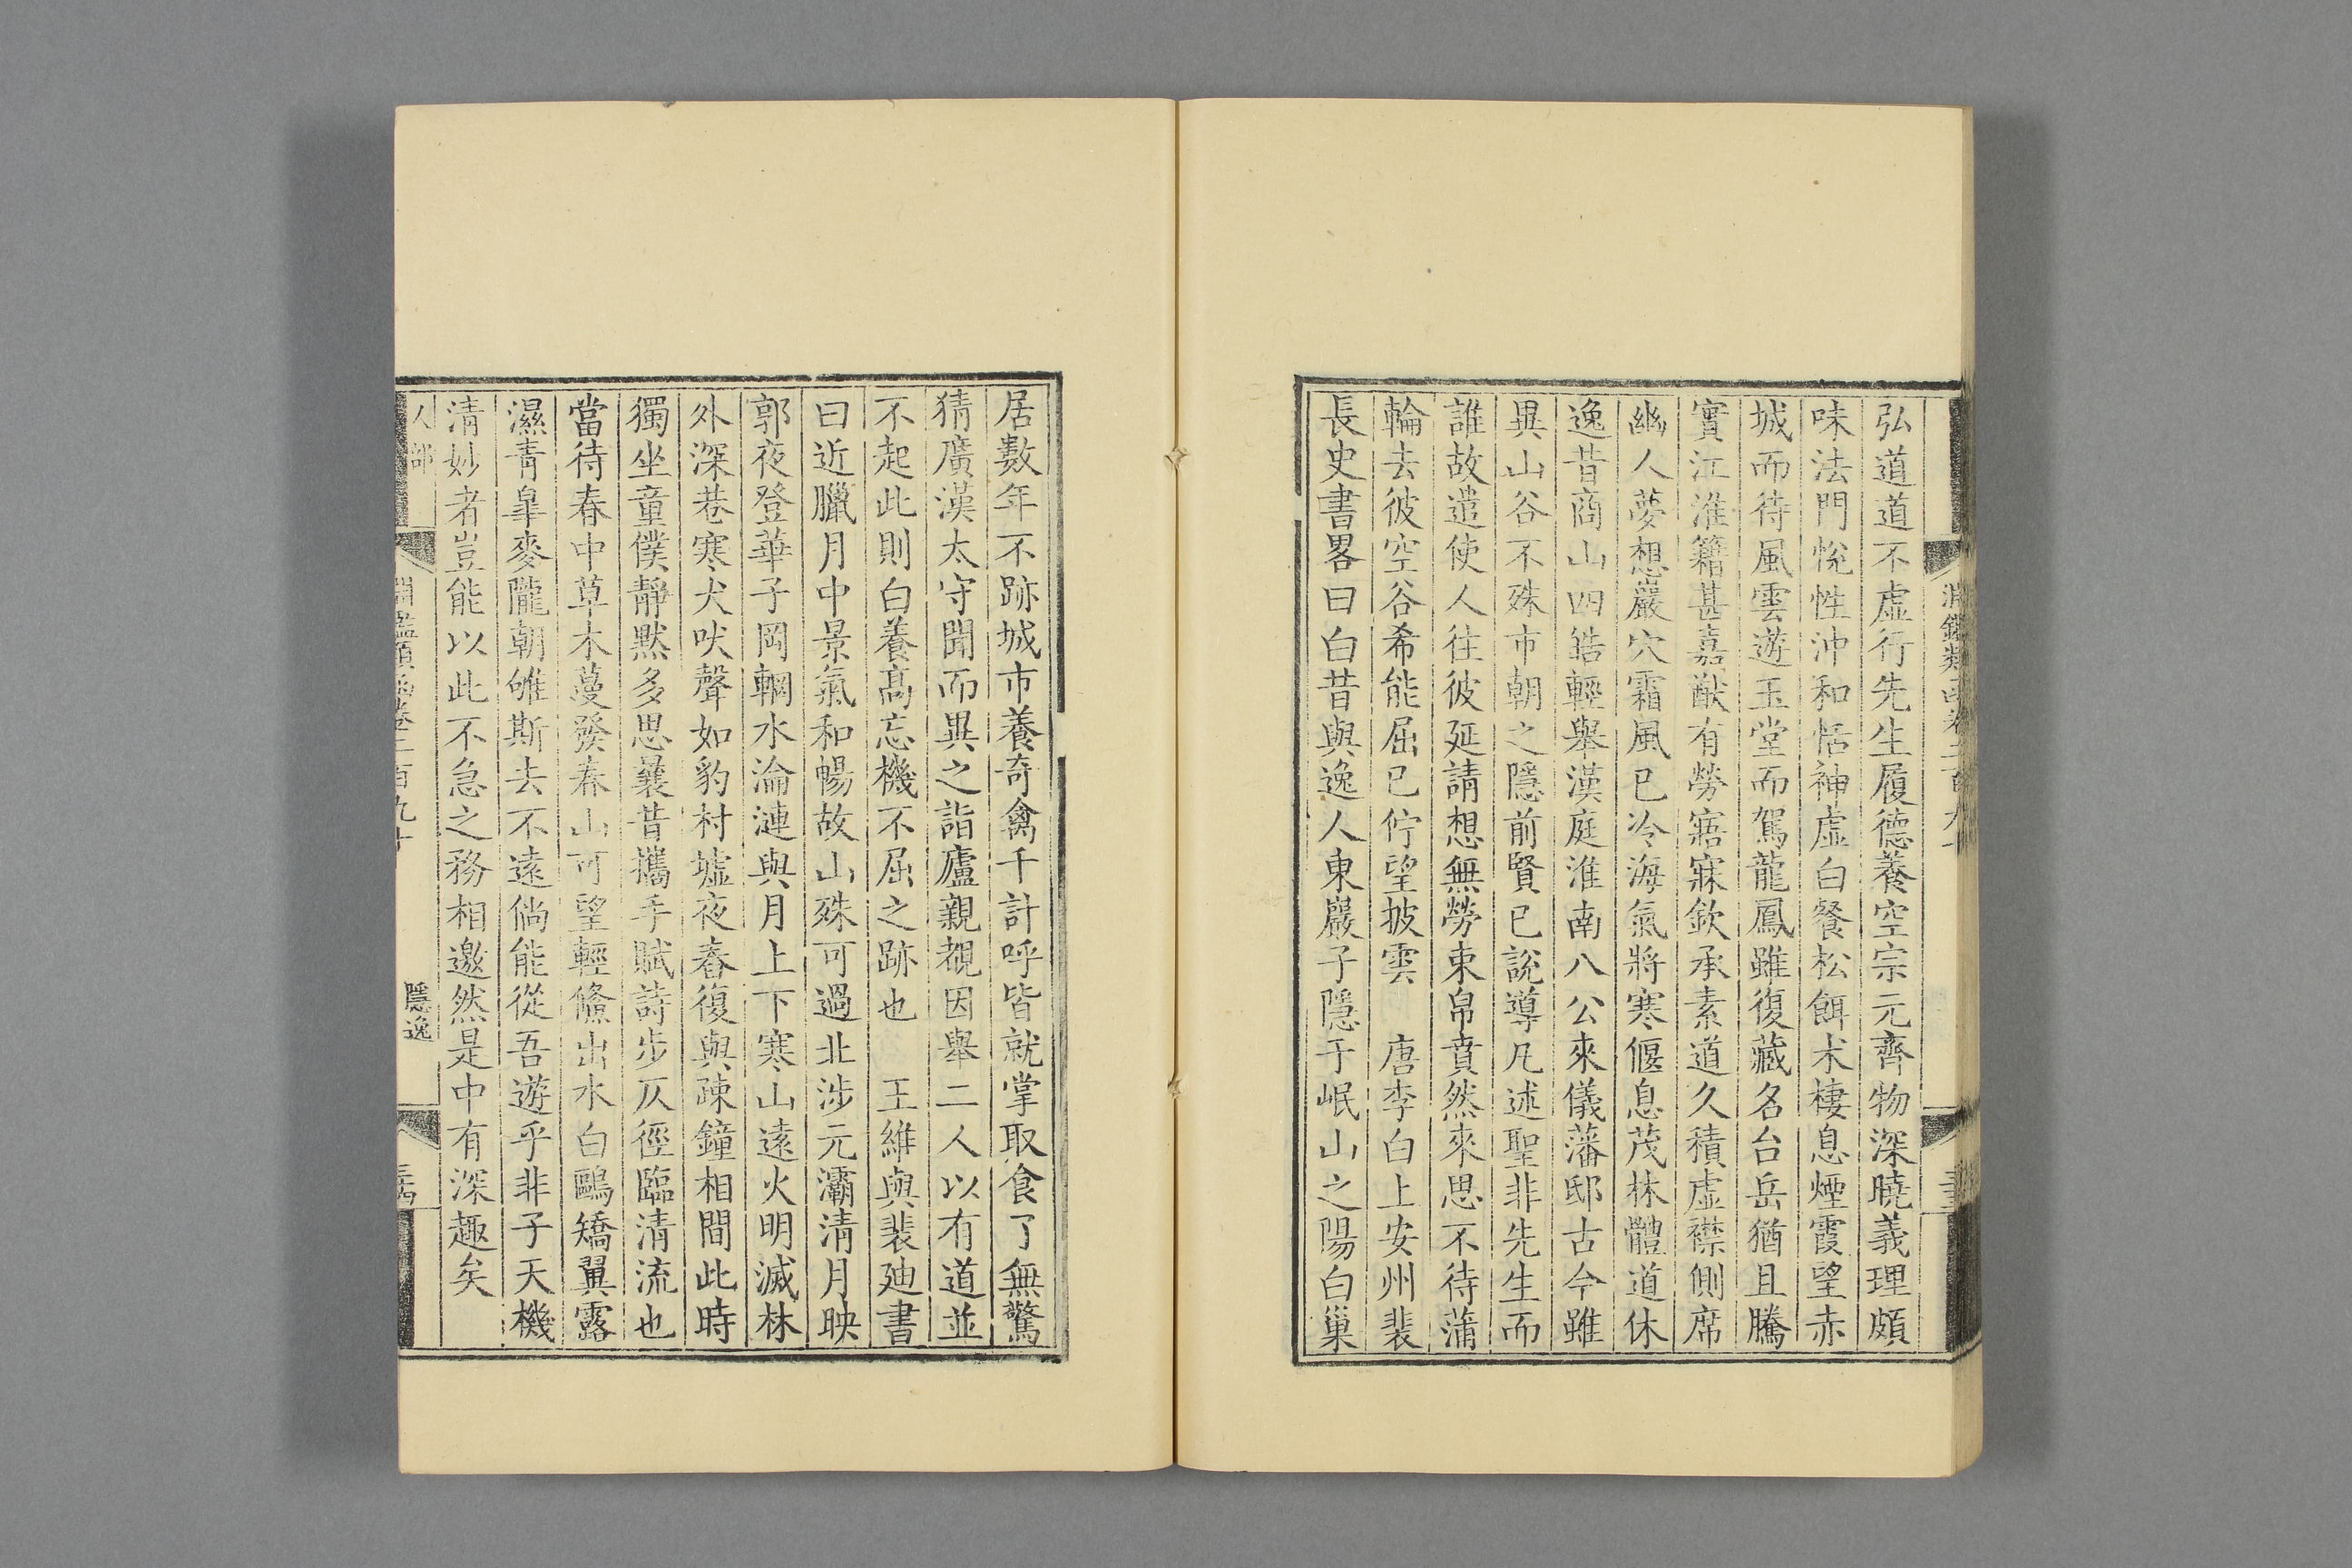 弘道道不虛行先生履德養空宗元齊物深曉義理頗
味法門悅性沖和恬神虛白餐松餌朮棲息煙霞望赤
城而待風雲遊玉堂而駕龍鳳雖復藏名台岳猶且騰
實江淮籍甚嘉猷有勞寤寐欽承素道久積虛襟側席
幽人夢想巖穴霜風已冷海氣將寒偃息茂林體道休
逸昔商山四皓輕舉漢庭淮南八公來儀藩邸古今雖
異山谷不殊市朝之隱前賢已說導凡述聖非先生而
誰故遣使人往彼延請想無勞束帛賁然來思不待蒲
輪去彼空谷希能屈已佇望披雲　唐李白上安州裴
長史書畧曰白昔與逸人東巖子隱于岷山之陽白巢
居數年不跡城市養奇禽千計呼皆就掌取食了無驚
猜廣漢太守聞而異之詣廬親覩因舉二人以有道並
不起此則白養高忘機不屈之跡也　王維與裴廸書
曰近臘月中景氣和暢故山殊可過北涉元灞清月映
郭夜登華子岡輞水淪漣與月上下寒山遠火明滅林
外深巷寒犬吠聲如豹村墟夜舂復與疎鐘相間此時
獨坐童僕靜默多思曩昔攜手賦詩步仄徑臨清流也
當待春中草木蔓發春山可望輕鯈出水白鷗矯翼露
濕青皐麥隴朝雊斯去不遠倘能從吾遊乎非子天機
清妙者豈能以此不急之務相邀然是中有深趣矣
人部
淵鑑類函卷二百九十
隱逸